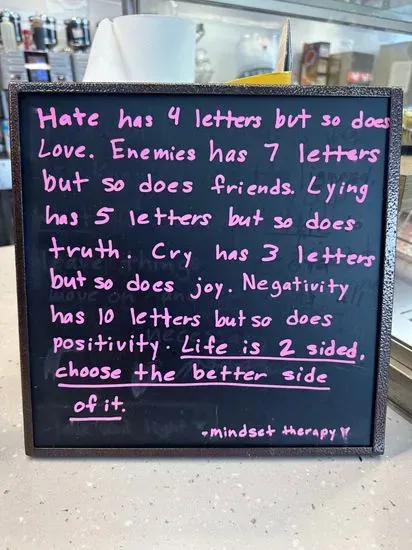 Hate has 4 letters but so does
Love. Enemies has 7 letters
but so does friends. Lying
has 5 letters but so does
truth. Cry has 3 letters
but so does joy. Negativity
has 10 letters but so does
positivity. Life is 2 sided,
choose the better side
of it.
♥mindset therapy♥